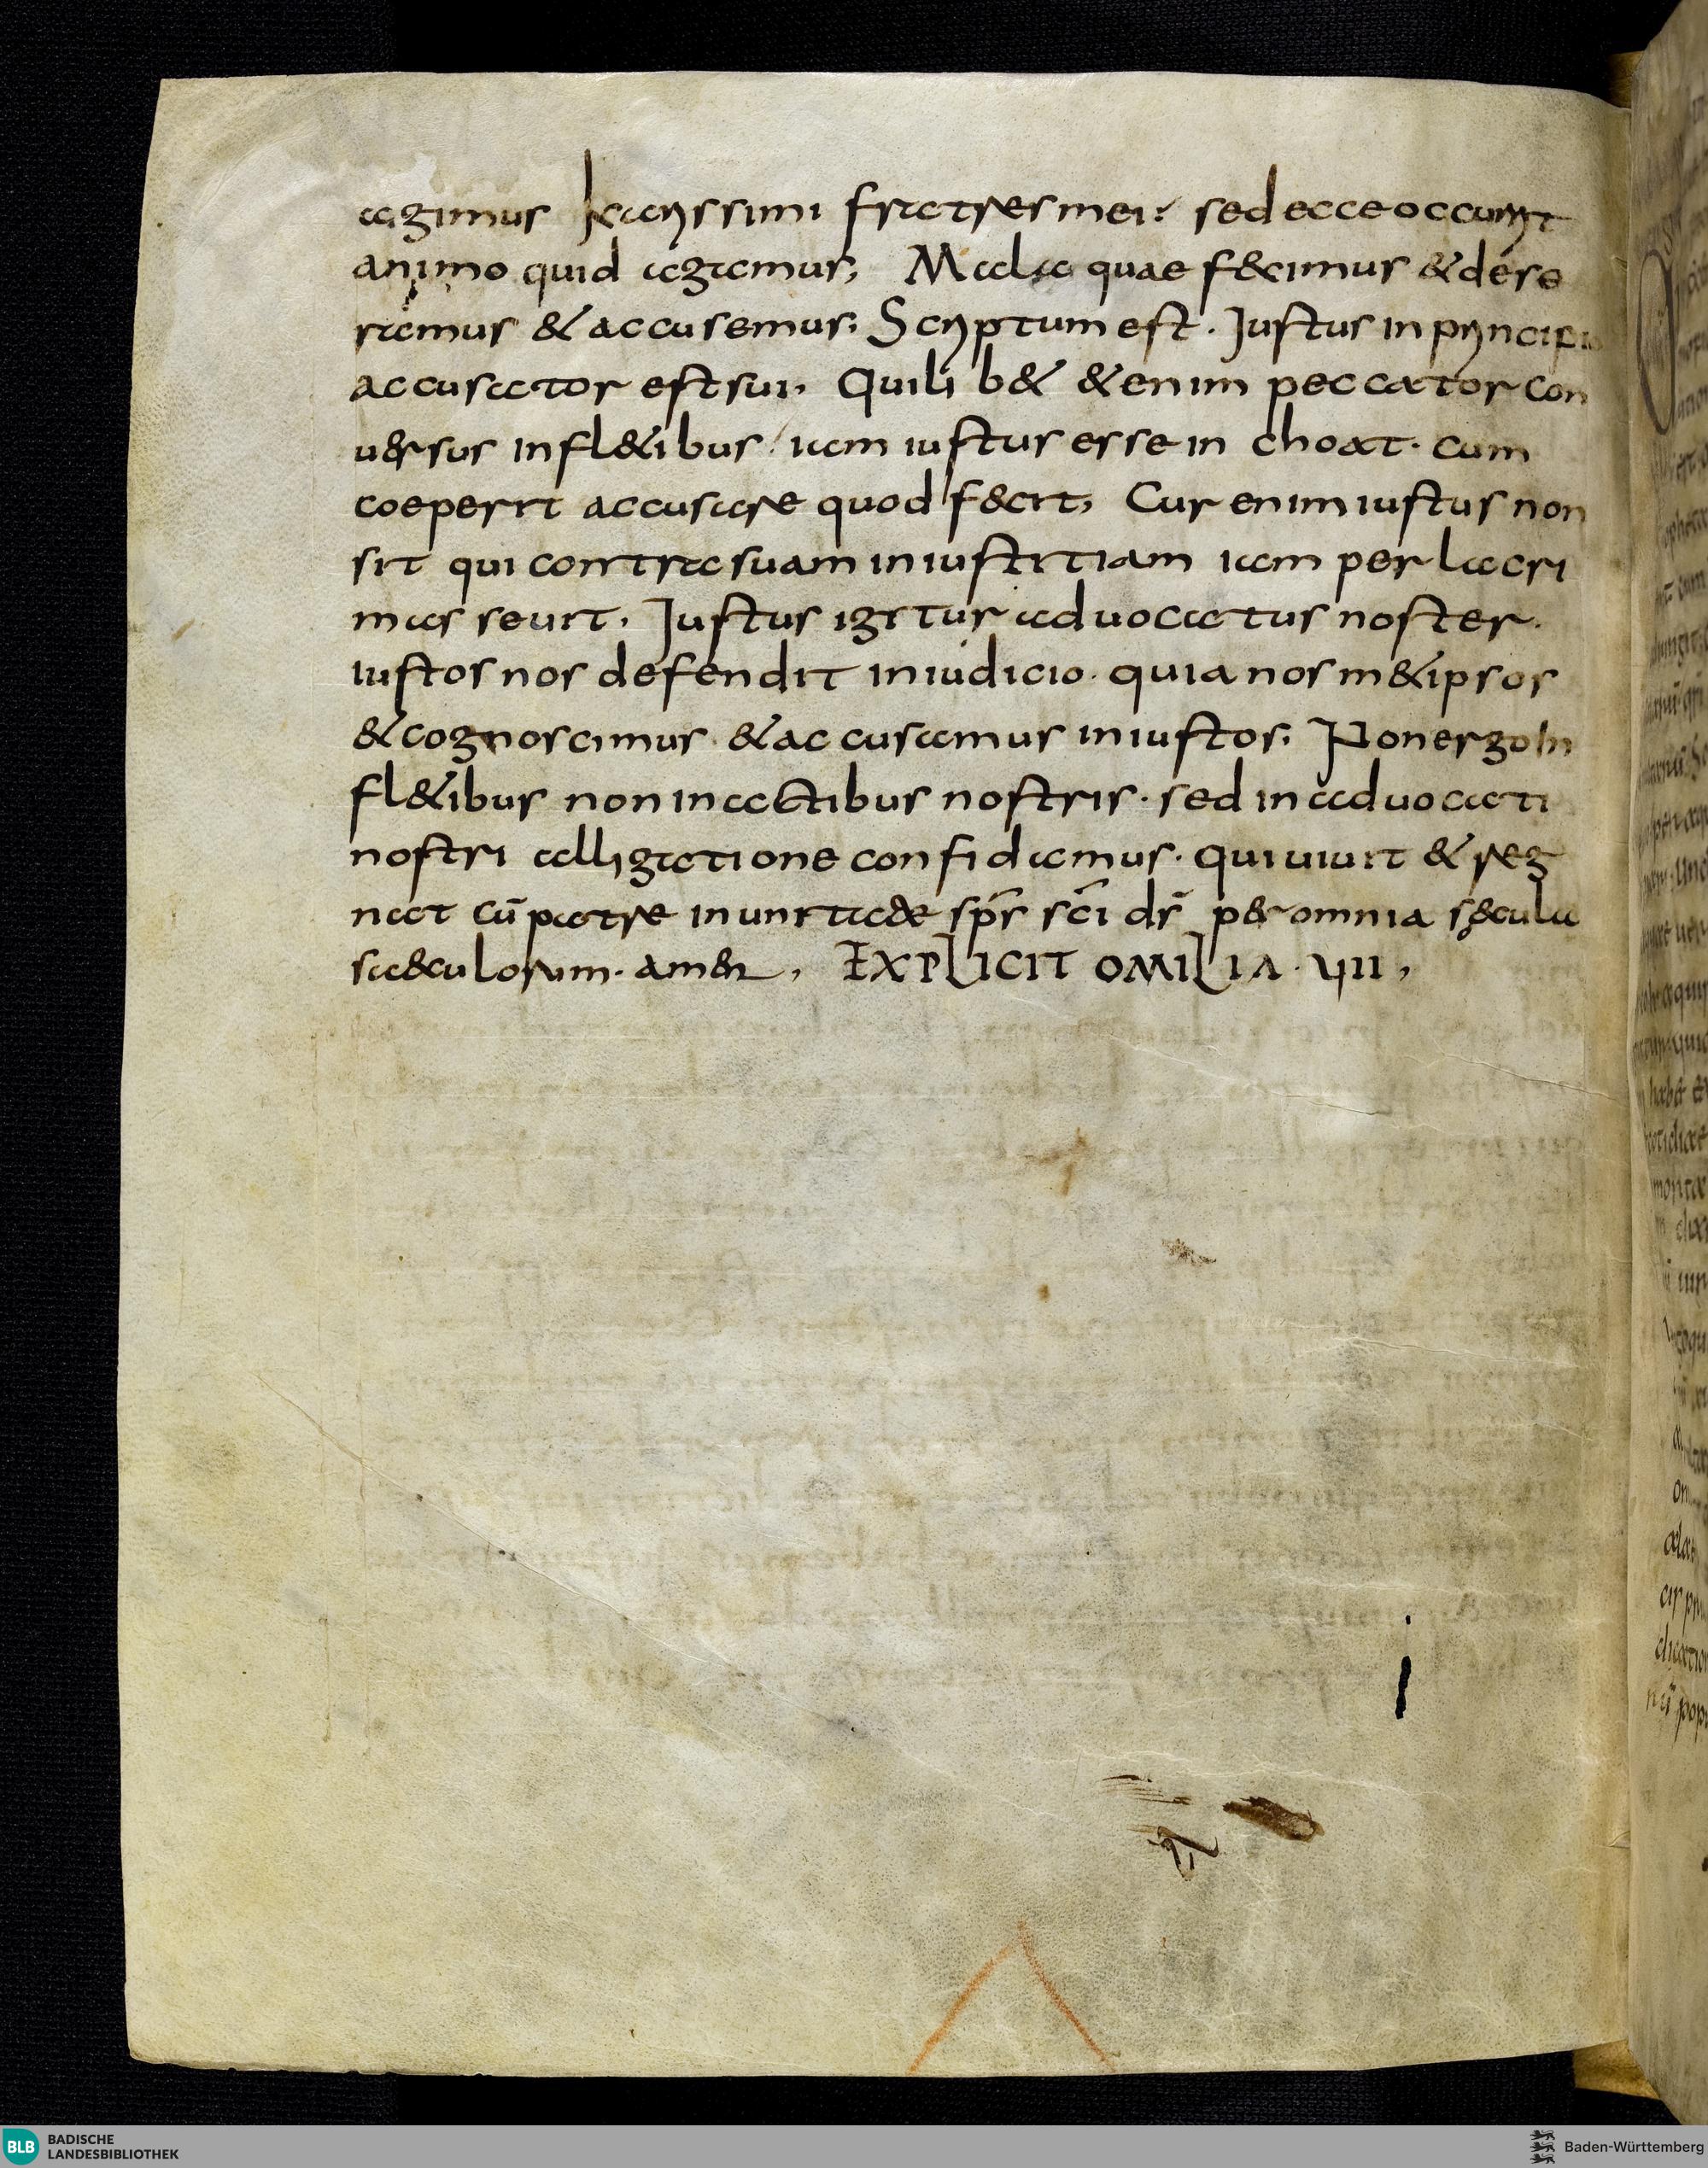 agimus karissimi fratres mei? sed ecce occurrit
animo quid agamus; Mala quae fecimus & dese
ramus & accusemus; Scriptum est. Justus in principio
accusator est sui, Quilib& &enim peccator con
uersus infl&ibus iam iustus esse in choat. cum
coeperit accusare quod fecit, Cur enim iustus non
sit qui contra suam iniustitiam iam per lacri
mas seuit, Justus igitur aduocatus noster.
iustos nos defendit in iudicio. quia nosm&ipsos
& cognoscimus & accusamus iniustos; Non ergo in
fl&ibus non in actibus nostris. sed in aduocati
nostri alligatione confidamus. qui uiuit & reg
nat cū patre in unitate sp̄s sc̄i ds̄ per omnia sęcula
saeculorum. amen, EXPLICIT OMILIA. VII,
BLB BADISCHE
LANDESBIBLIOTHEK
Baden-Württemberg